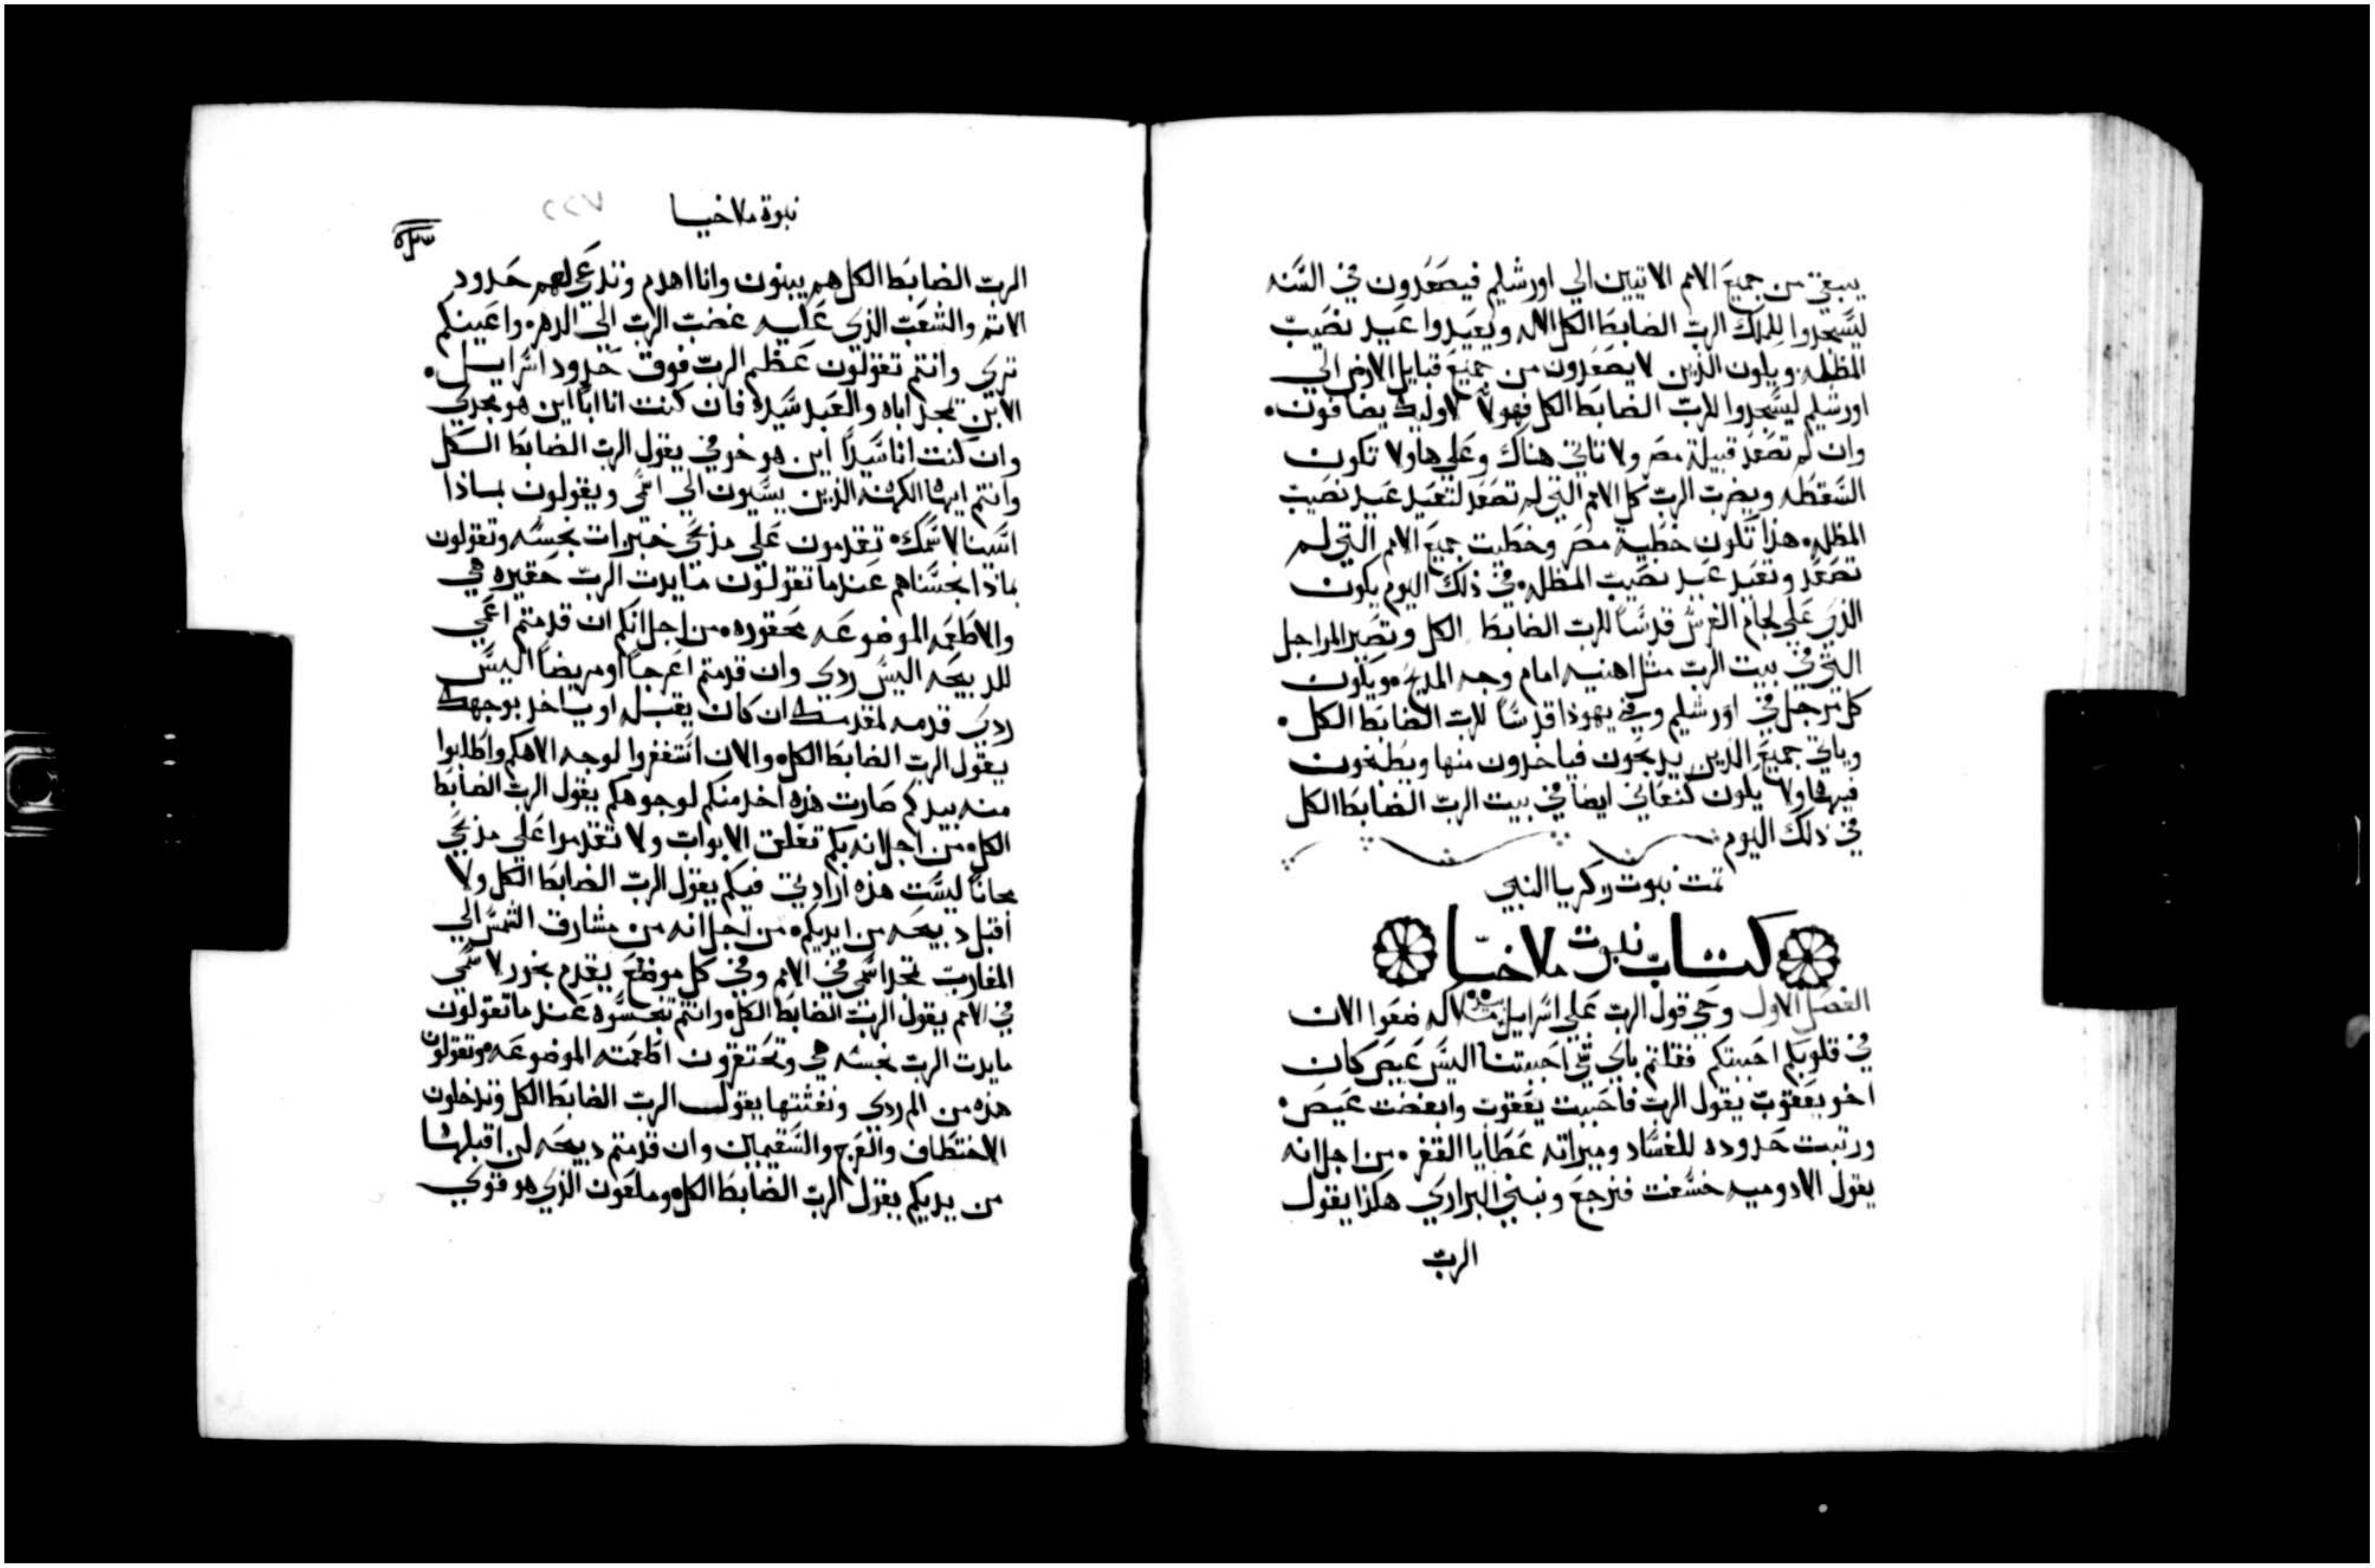 يبقي من جميع الامم الاتيين الي اورشليم فيصعدون في السنه
ليسجدوا للملك الرب الضابط الكل الاله ويعيدوا عيد نصيب
المظله ويكون الذين لا يصعدون من جميع قبايل الارض الي
اورشليم ليسجدوا للرب الضابط الكل فهولا لاوليك يضافون.
وان لم تصعد قبيلة مصر ولا تاتي هناك وعلي هاولا تكون
السقطه ويضرب الرب كل الامم التي لم تصعد لتعيد عيد نصيب
المظله هذا تكون خطية مصر وخطيت جميع الامم التي لم
تصعد وتعيد عيد نصيب المظله في ذلك اليوم يكون
الذي علي لجام الفرس قدسا للرب الضابط الكل وتصير المراجل
التي في بيت الرب مثل اهنيه امام وجه المذبح ويكون
كل مرجل في اورشليم وفي يهوذا قدسا للرب الضابط الكل.
وياتي جميع الذين يدبحون فياخدون منها ويطبخون
فيها ولا يكون كنعاني ايضا في بيت الرب الضابط الكل
في ذلك اليوم
تمت نبوت زكريا النبي
كتاب نبوت ملاخيا
الفصل الاول وحي قول الرب علي اسرايل بيد ملاكه ضعوا الان
في قلوبكم احببتكم فقلتم باي شي احببتنا اليس عيص كان
اخو يعقوب يقول الرب فاحببت يعقوب وابغضت عيص.
ورتبت حدوده للفساد وميراثه عطايا القفر من اجل انه
يقول الادوميه خسفت فنرجع ونبني البراري هكذا يقول
الرب
نبوة ملاخيا
الرب الضابط الكل هم يبنون وانا اهدم وتدعي لهم حدود
الاثم والشعب الذي عليه غضب الرب الي الدهر واعينكم
تري وانتم تقولون عظم الرب فوق حدود اسرايل.
الابن يمجد اباه والعبد سيده فان كنت انا ابا اين هو مجدي
وان كنت انا سيدا اين هو خوفي يقول الرب الضابط الكل
وانتم ايها الكهنه الذين يسيون الي اسمي ويقولون بماذا
اسينا لاسمك تقدمون علي مذبحي خبزات نجسه وتقولون
بماذا نجسناهم عندما تقولون مايدت الرب حقيره هي
والاطعمه الموضوعه محقوره من اجل انكم ان قدمتم اعمي
للدبيحه اليس ردي وان قدمتم اعرجا او مريضا اليس
ردي قدمه لمقدمك ان كان يقبله او ياخد بوجهك
يقول الرب الضابط الكل والان استغفروا لوجه الاهكم واطلبوا
منه بيدكم صارت هذه اخد منكم لوجوهكم يقول الرب الضابط
الكل من اجل انه بكم تغلق الابواب ولا تقدموا علي مذبحي
مجانا ليست هذه ارادتي فيكم يقول الرب الضابط الكل ولا
اقبل دبيحه من ايديكم من اجل انه من مشارق الشمس الي
المغارب تمجد اسمي في الامم وفي كل موضع يقدم بخور لاسمي
في الامم يقول الرب الضابط الكل وانتم تنجسوه عندما تقولون
مايدت الرب نجسه هي وتحتقرون اطعمته الموضوعه وتقولون
هذه من الم ردي ونفثتها يقول الرب الضابط الكل وتدخلون
الاختطاف والعرج والسقيمين وان قدمتم دبيحه لن اقبلها
من يديكم يقول الرب الضابط الكل وملعون الذي هو قوي